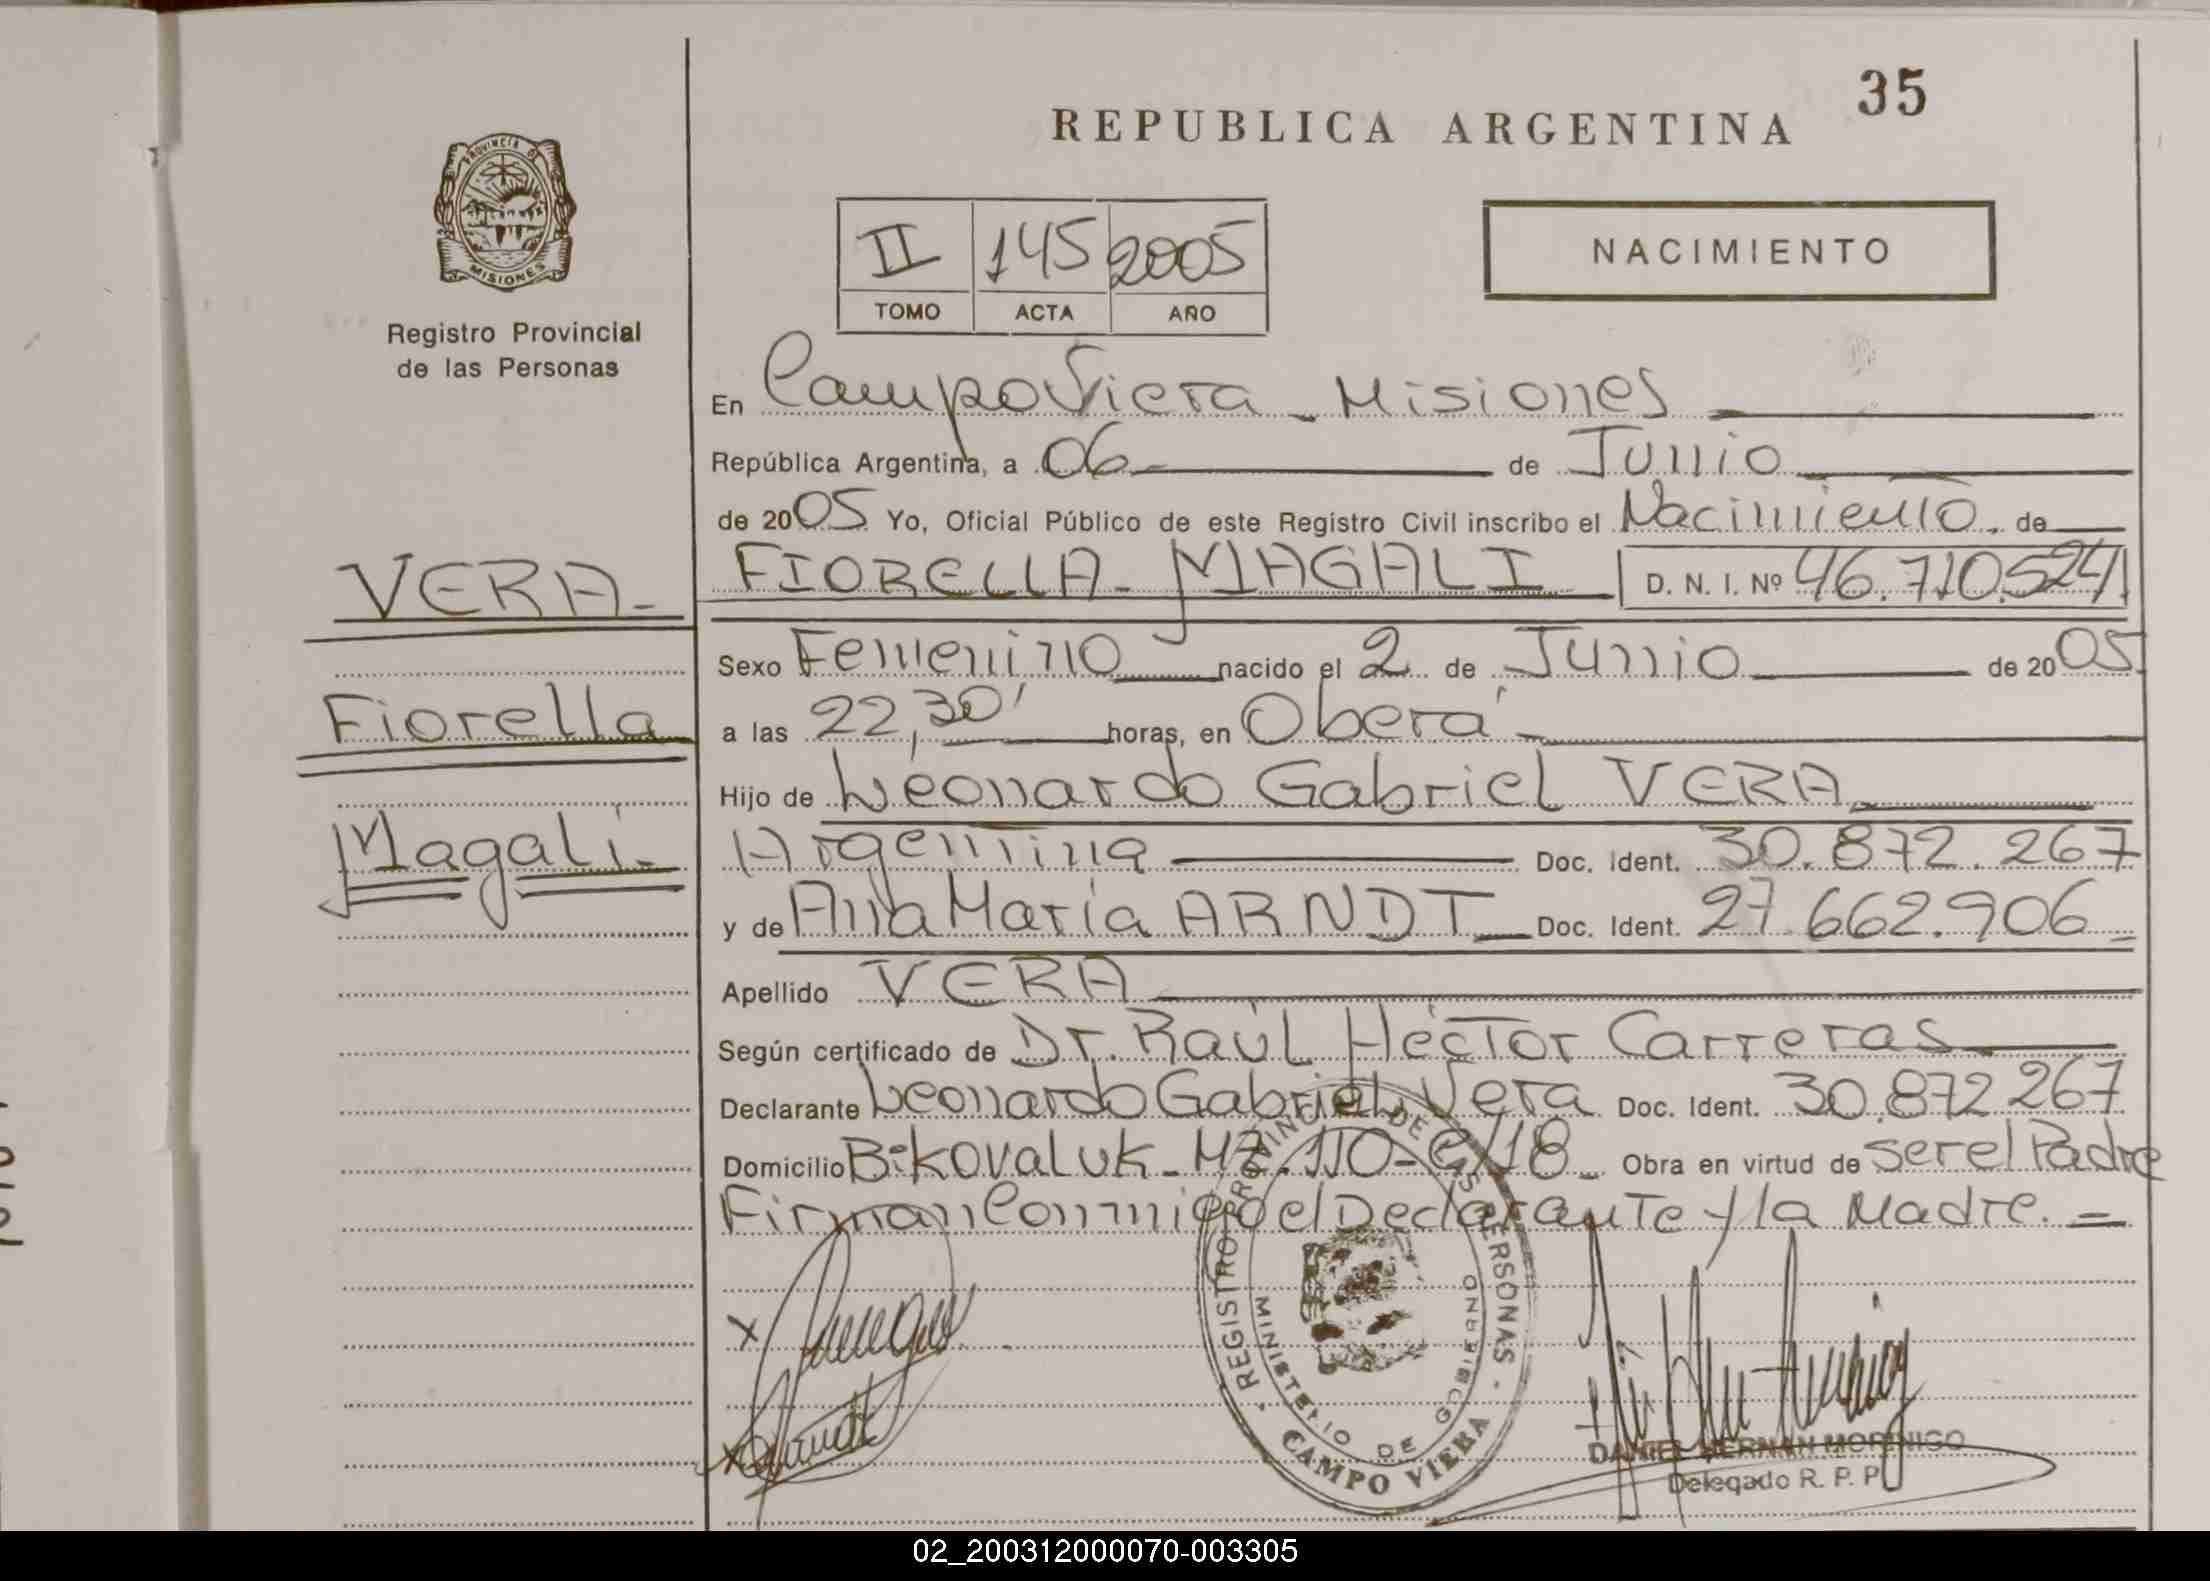 35
REPUBLICA ARGENTINA
PROVINCIA DE
MISIONES
Registro Provincial
de las Personas
II 145 2005
TOMO ACTA AÑO
NACIMIENTO
En Campo Viera - Misiones
República Argentina, a 06 de Junio
de 2005 Yo, Oficial Público de este Registro Civil inscribo el Nacimiento de
VERA
FIORELLA MAGALI D. N. I. Nº 46.710.524
Sexo Femenino nacido el 2 de Junio de 2005
Fiorella
a las 22,30' horas, en Oberá
Hijo de Leonardo Gabriel VERA
Magali
Argentina Doc. Ident. 30.872.267
y de Ana María ARNDT Doc. Ident. 27.662.906
Apellido VERA
Según certificado de Dr. Raúl Héctor Carreras
Declarante Leonardo Gabriel Vera Doc. Ident. 30.872.267
Domicilio Bº Kovaluk - MZ. 110 - C/18 Obra en virtud de ser el Padre
Firman Conmigo el Declarante y la Madre.
REGISTRO PROVINCIAL DE LAS PERSONAS
MINISTERIO DE GOBIERNO
CAMPO VIERA
DANIEL HERNAN MORINIGO
Delegado R. P. P
02_200312000070-003305